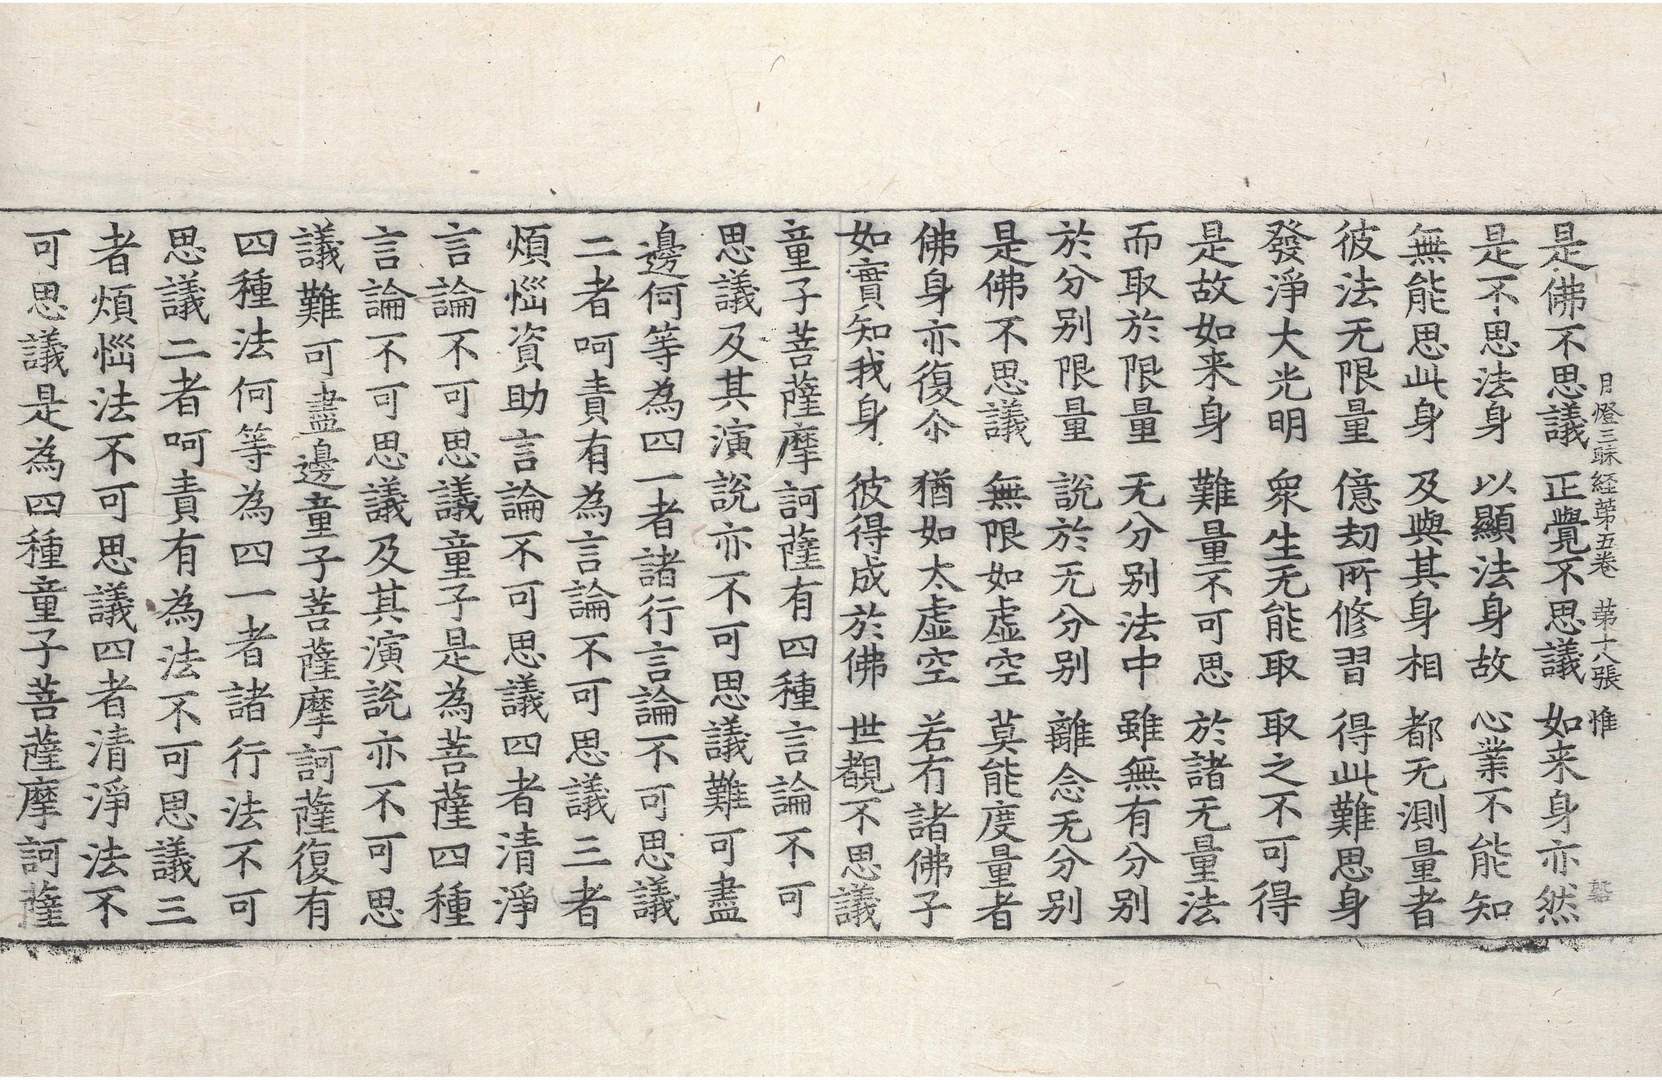 月燈三昧経第五卷 第十八張 惟
是佛不思議 正覺不思議 如来身亦然
是不思法身 以顯法身故 心業不能知
無能思此身 及與其身相 都无測量者
彼法无限量 億劫所修習 得此難思身
發淨大光明 衆生无能取 取之不可得
是故如来身 難量不可思 於諸无量法
而取於限量 无分别法中 雖無有分别
於分别限量 說於无分别 離念无分别
是佛不思議 無限如虚空 莫能度量者
佛身亦復尒 猶如太虚空 若有諸佛子
如實知我身 彼得成於佛 世覩不思議
童子菩薩摩訶薩有四種言論不可
思議及其演說亦不可思議難可盡
邊何等為四一者諸行言論不可思議
二者呵責有為言論不可思議三者
煩惱資助言論不可思議四者清淨
言論不可思議童子是為菩薩四種
言論不可思議及其演說亦不可思
議難可盡邊童子菩薩摩訶薩復有
四種法何等為四一者諸行法不可
思議二者呵責有為法不可思議三
者煩惱法不可思議四者清淨法不
可思議是為四種童子菩薩摩訶薩